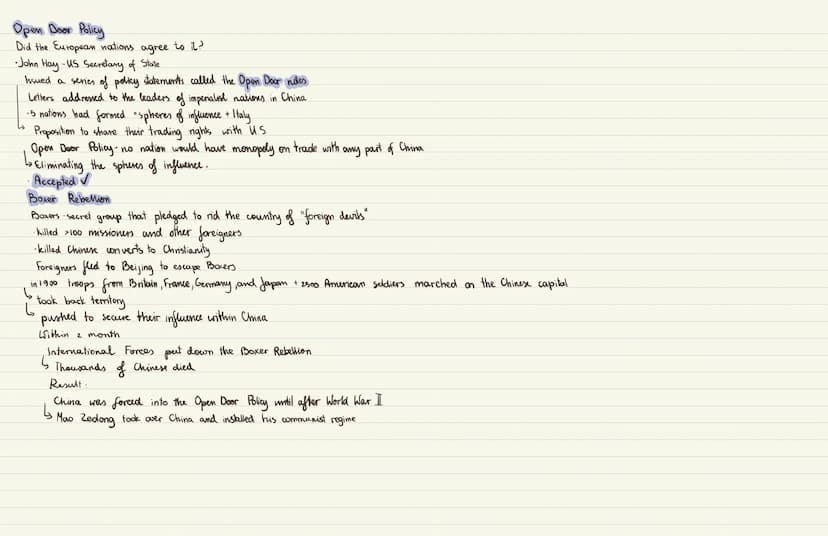 Open Door Policy
Did the European nations agree to it?
·John Hay - US Secretary of State
Issued a series of policy statements called the Open Door notes
Letters addressed to the leaders of imperialist nations in China
·5 nations had formed "spheres of influence + Italy
Proposition to share their trading rights with US
Open Door Policy - no nation would have monopoly on trade with any part of China
Eliminating the spheres of influence.
· Accepted ✓
Boxer Rebellion
Boxers - secret group that pledged to rid the country of "foreign devils"
·killed >100 missioners and other foreigners
·killed Chinese converts to Christianity
Foreigners fled to Beijing to escape Boxers
in 1900 troops from Britain, France, Germany, and Japan + 2500 American soldiers marched on the Chinese capital
took back territory
pushed to secure their influence within China
Within 2 month
International Forces put down the Boxer Rebellion
Thousands of Chinese died
Result:
China was forced into the Open Door Policy until after World War II
Mao Zedong took over China and installed his communist regime